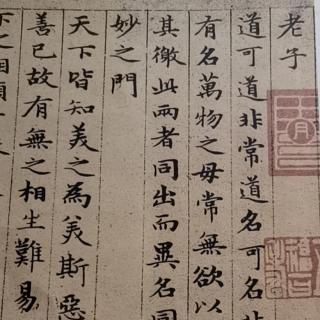 老子
道可道非常道名可名非
有名萬物之母常無欲以
其徼此兩者同出而異名同
妙之門
天下皆知美之為美斯惡
善已故有無之相生難易